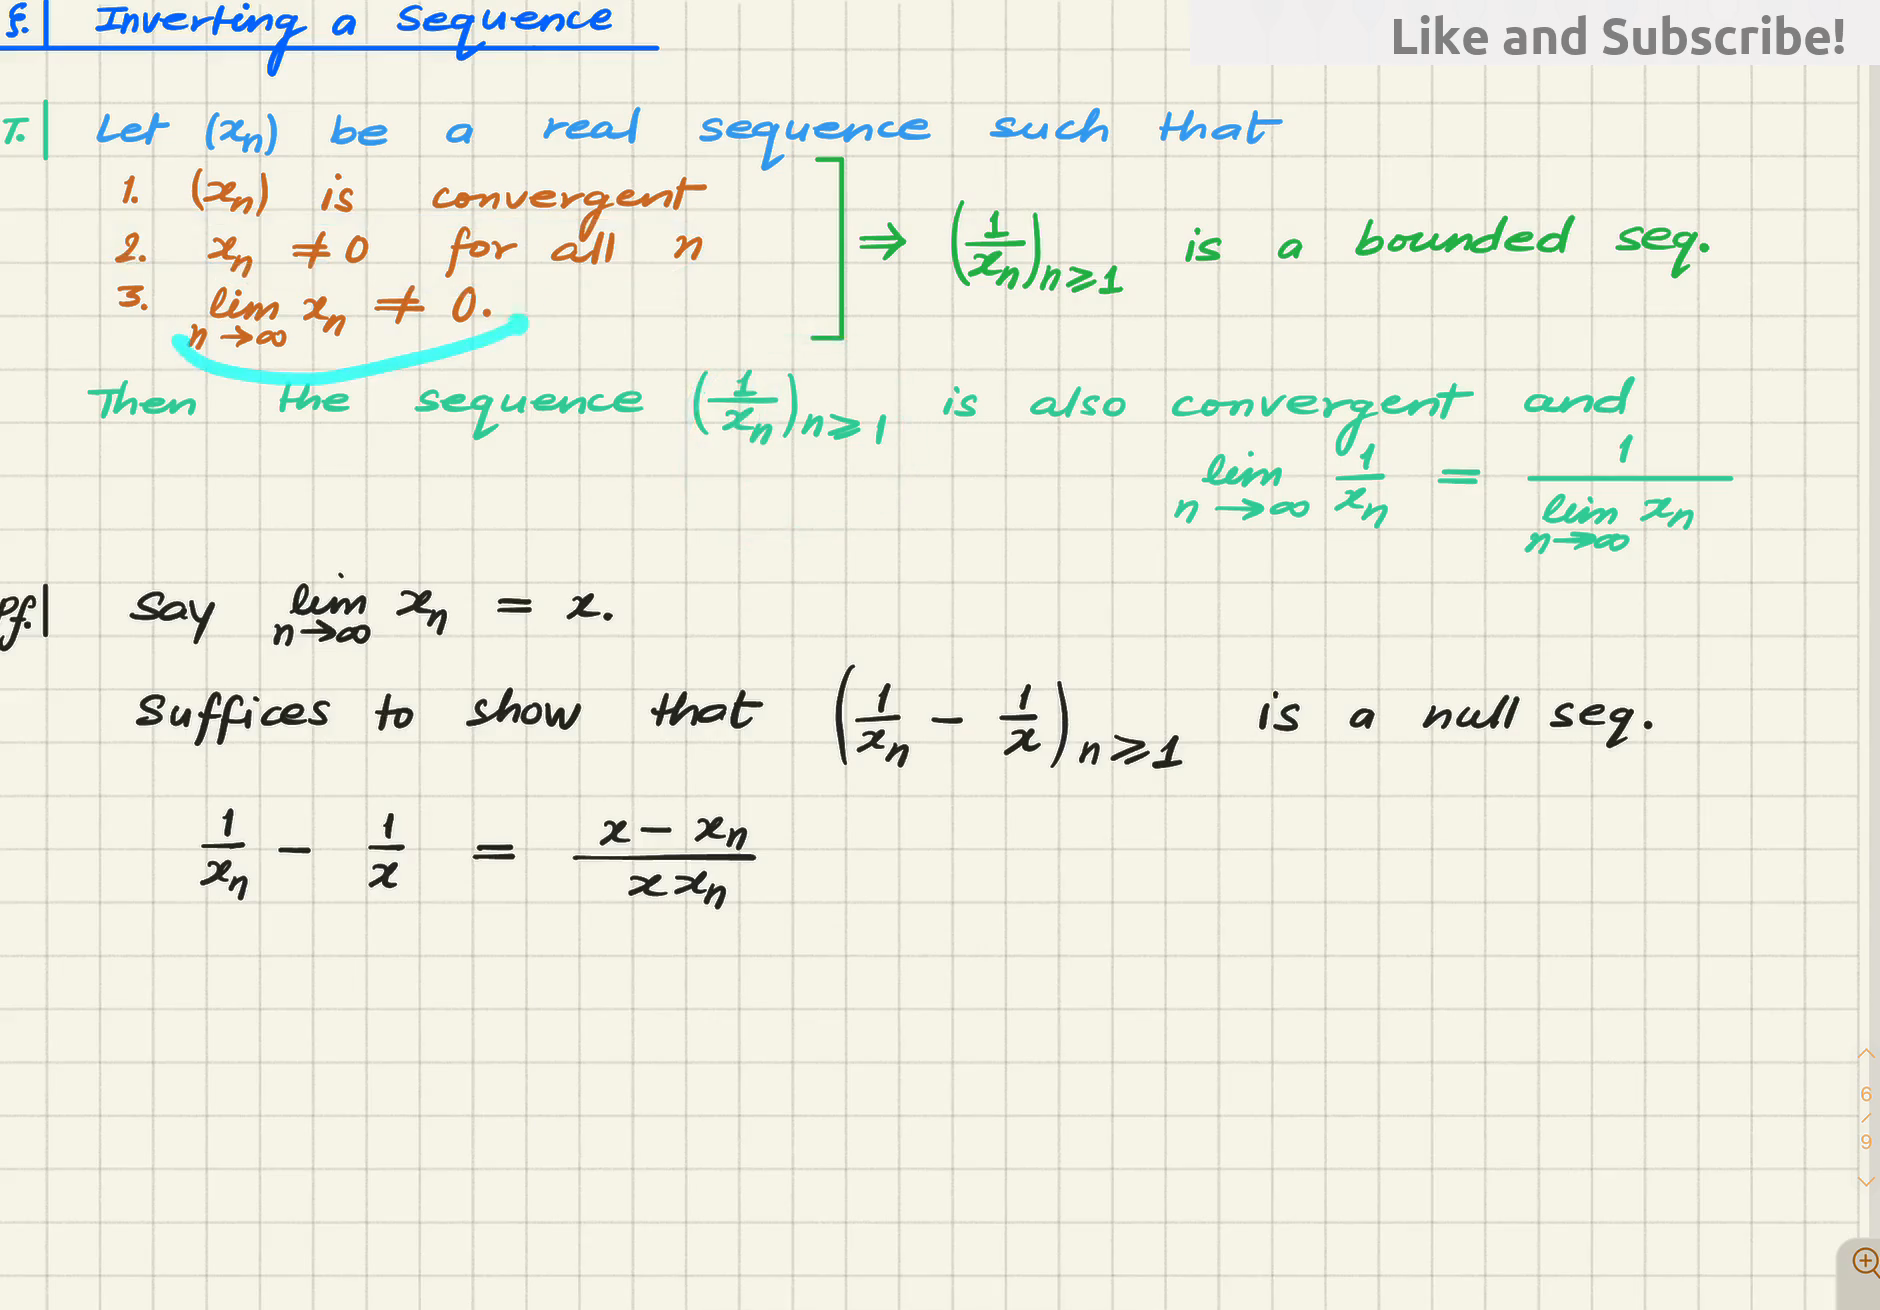 §. Inverting a Sequence
Like and Subscribe!
T. Let (xₙ) be a real sequence such that
1. (xₙ) is convergent
2. xₙ ≠ 0 for all n
3. lim_{n→∞} xₙ ≠ 0.
⇒ (1/xₙ)_{n≥1} is a bounded seq.
Then the sequence (1/xₙ)_{n≥1} is also convergent and
lim_{n→∞} 1/xₙ = 1/(lim_{n→∞} xₙ)
Pf. Say lim_{n→∞} xₙ = x.
Suffices to show that (1/xₙ - 1/x)_{n≥1} is a null seq.
1/xₙ - 1/x = (x - xₙ)/(x xₙ)
6
/
9